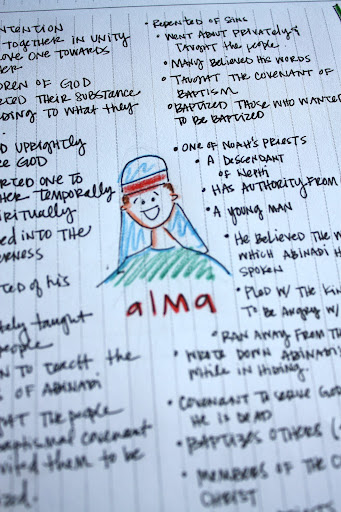 NTENTION
TOGETHER IN UNITY
OVE ONE TOWARDS
DREN OF GOD
RTED THEIR SUBSTANCE
DING TO WHAT THEY
UPRIGHTLY
RE GOD
ARTED ONE TO
HER TEMPORALLY
IRITUALLY
ED INTO THE
ERNESS
TED OF HIS
TELY TAUGHT
PEOPLE
N TO TEACH THE
S OF ABINADI
GHT THE PEOPLE
BAPTISMAL COVENANT
VITED THEM TO BE
IZED.
alma
• REPENTED OF SINS
• WENT ABOUT PRIVATELY &
TAUGHT THE PEOPLE.
• MANY BELIEVED HIS WORDS
• TAUGHT THE COVENANT OF
BAPTISM
• BAPTIZED THOSE WHO WANTED
TO BE BAPTIZED
• ONE OF NOAH'S PRIESTS
• A DESCENDANT
OF NEPHI
• HAS AUTHORITY FROM
• A YOUNG MAN
• HE BELIEVED THE W
WHICH ABINADI H
SPOKEN
• PLED W/ THE KIN
TO BE ANGRY W/
• RAN AWAY FROM TH
• WROTE DOWN ABINADI
WHILE IN HIDING.
• COVENANT TO SERVE GOD
HE IS DEAD
• BAPTIZES OTHERS (
• MEMBERS OF THE C
CHRIST